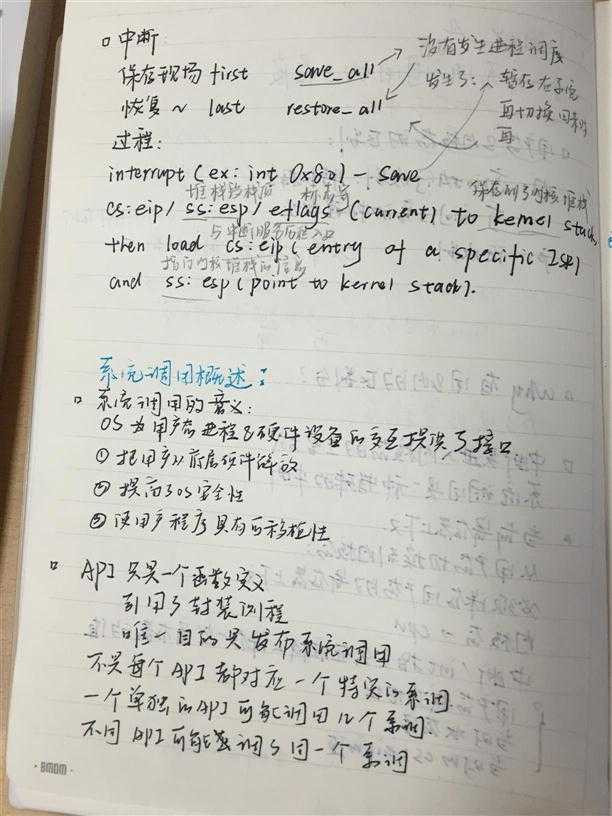 中断
保存现场 first save_all 没有发生进程调度
恢复~ last restore_all 发生了: 暂存在系统
再切换回来时
再
过程:
interrupt (ex: int 0x80) - save
堆栈段栈顶 标志寄 保存到了内核堆栈
cs:eip/ ss:esp/ eflags (current) to kernel stack,
与中断服务程入口
then load cs:eip (entry of a specific ISR)
指向内核堆栈的信息
and ss:esp (point to kernel stack).
系统调用概述:
系统调用的意义:
OS为用户态进程与硬件设备的交互提供了接口
① 把用户从底层硬件解放
② 提高了OS安全性
③ 使用户程序具有可移植性
API 只是一个函数定义
引用了封装例程
唯一目的是发布系统调用
不是每个API都对应一个特定的系调.
一个单独的API可能调用几个系调.
不同API可能调了同一个系调
BMOM